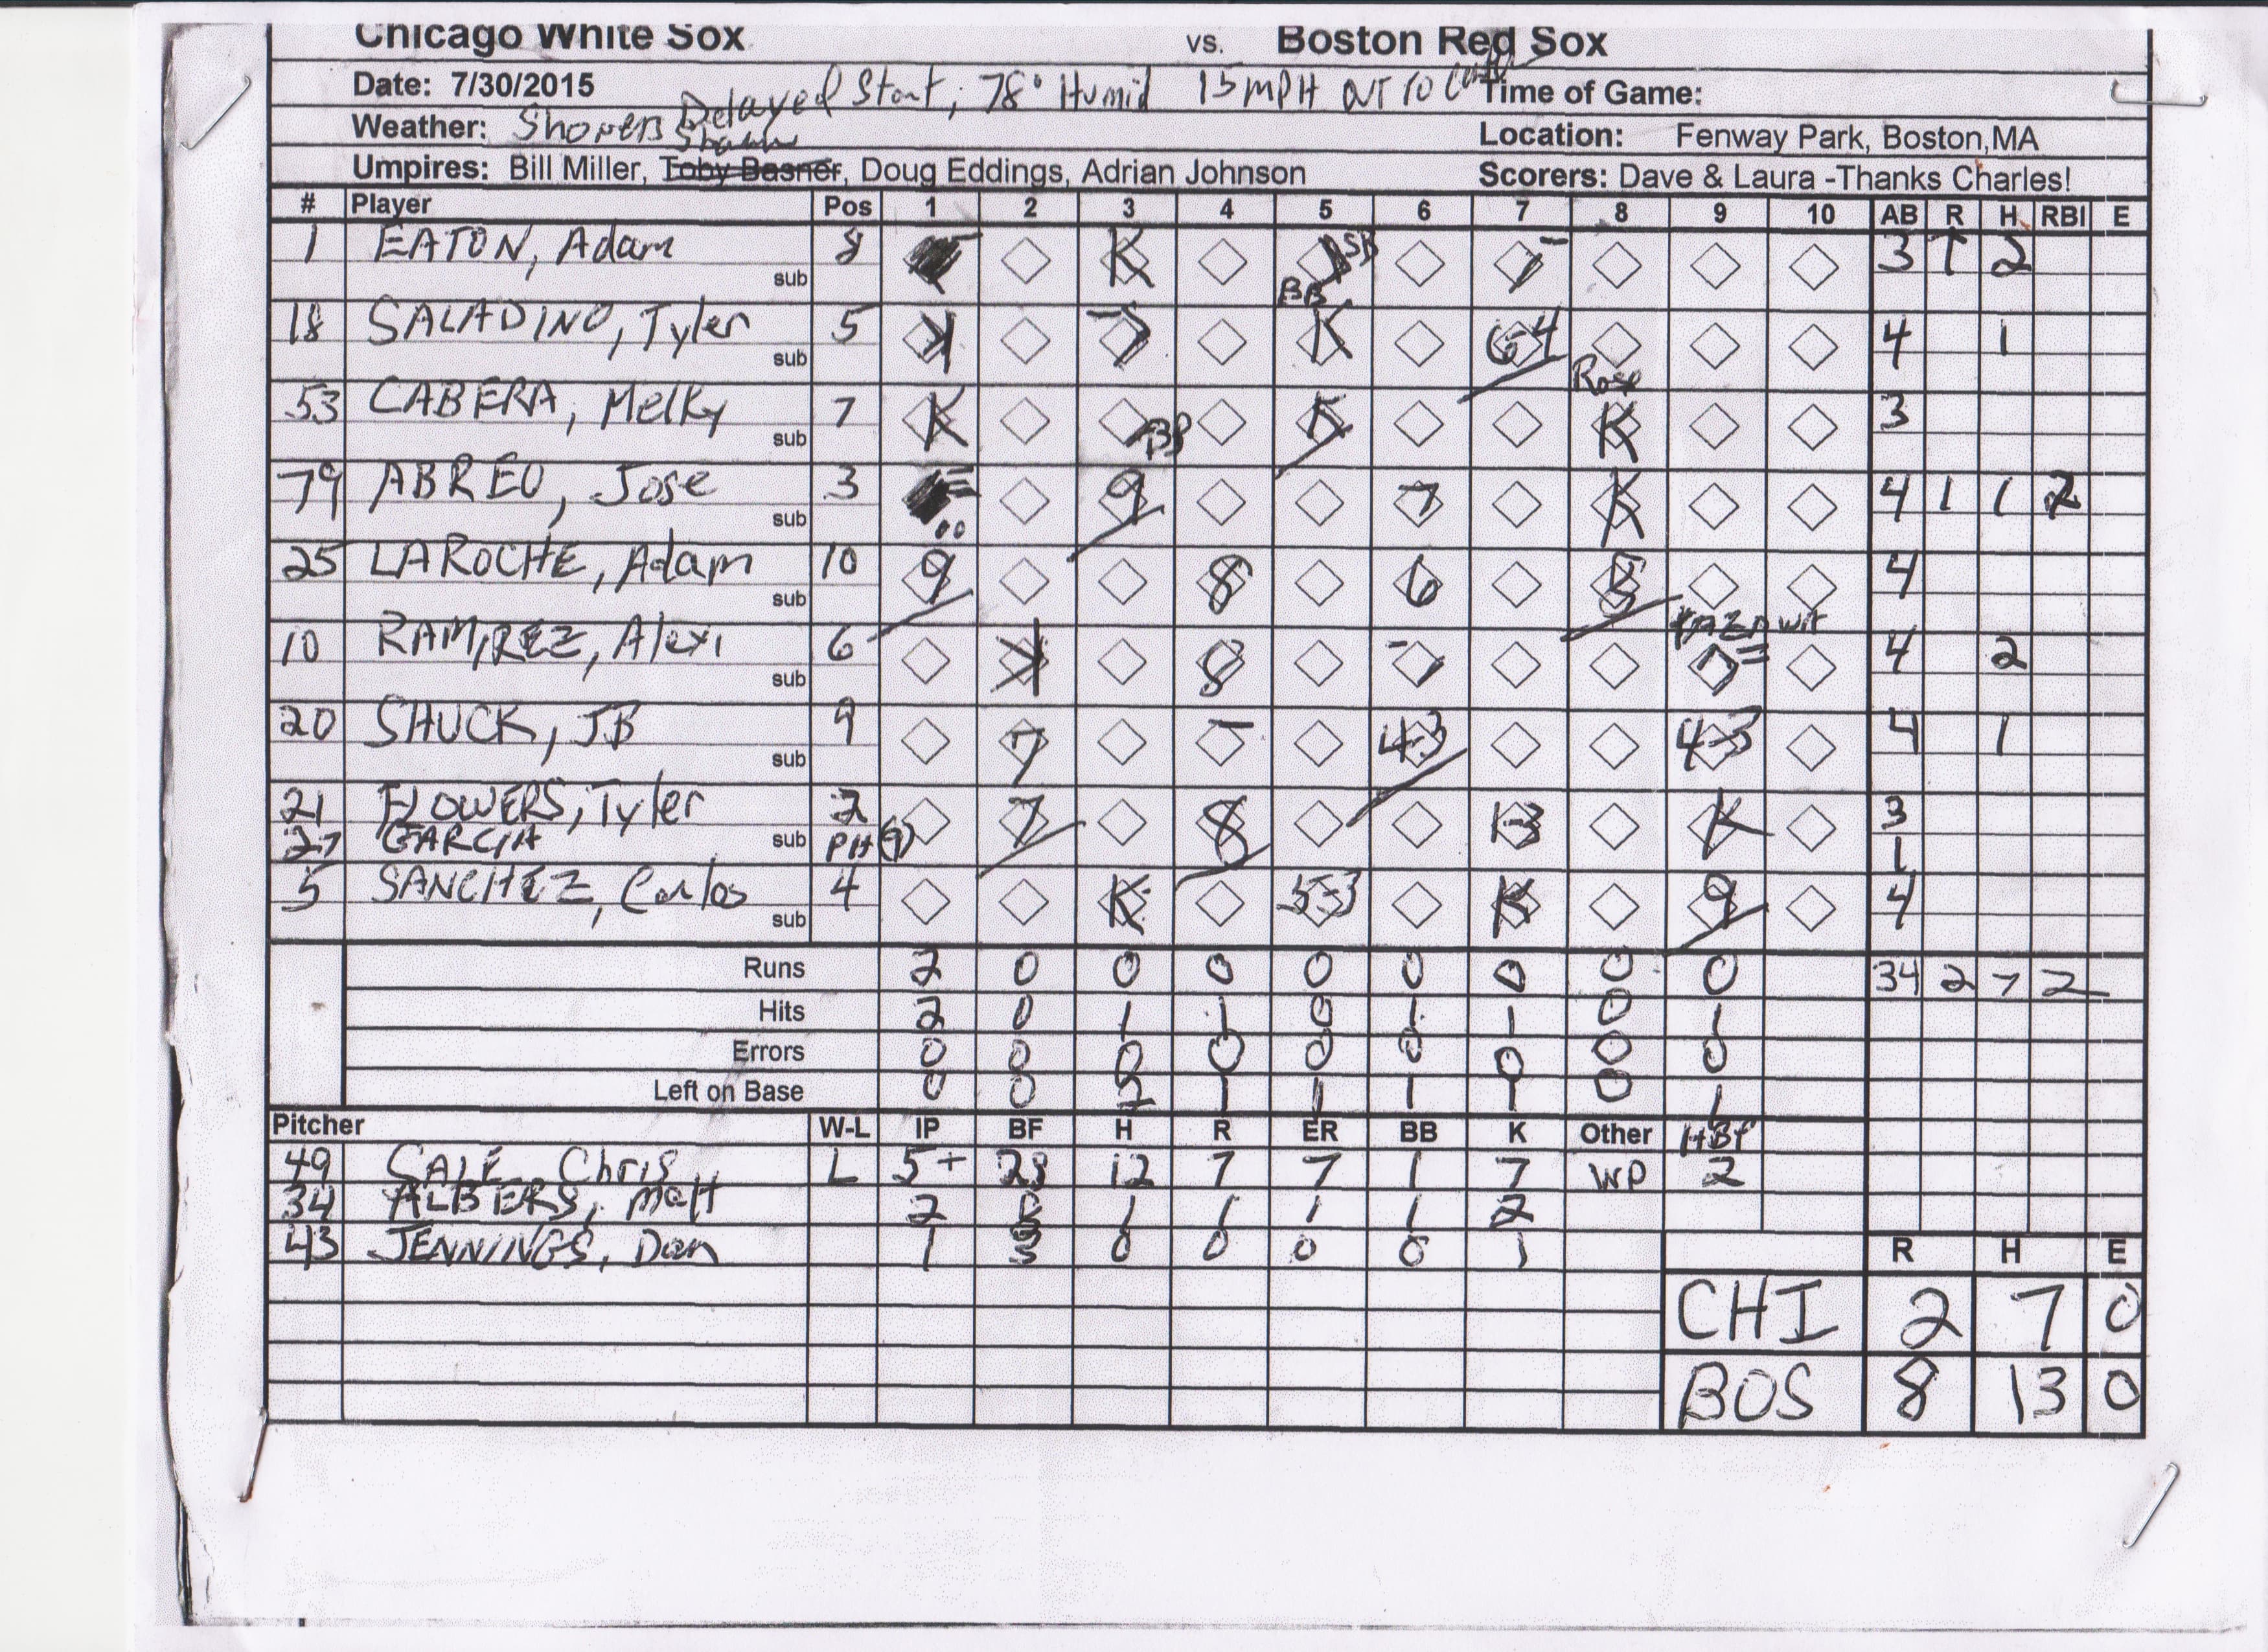 Chicago White Sox vs. Boston Red Sox
Date: 7/30/2015 Delayed Start, 78° Humid 15 MPH OUT TO Time of Game:
Weather: Showers Location: Fenway Park, Boston,MA
Umpires: Bill Miller, Toby Basner, Doug Eddings, Adrian Johnson Scorers: Dave & Laura -Thanks Charles!
# Player Pos 1 2 3 4 5 6 7 8 9 10 AB R H RBI E
1 EATON, Adam 8 K SB 7 3 1 2
sub BB
18 SALADINO, Tyler 5 K 7 K 6-4 4 1
sub
53 CABERA, Melky 7 K BP K Ross K 3
sub
79 ABREU, Jose 3 9 7 K 4 1 1 2
sub
25 LAROCHE, Adam 10 9 8 6 5 4
sub
10 RAMIREZ, Alexi 6 K 8 7 7 4 2
sub
20 SHUCK, JB 9 7 4-3 4-3 4 1
sub
21 FLOWERS, Tyler 2 7 8 1-3 K 3
27 GARCIA sub PH (9) 1
5 SANCHEZ, Carlos 4 K 5-3 K 9 4
sub
Runs 2 0 0 0 0 0 0 0 0 34 2 7 2
Hits 2 0 1 1 0 1 1 0 1
Errors 0 0 0 0 0 0 0 0 0
Left on Base 0 0 2 1 1 1 1 0 1
Pitcher W-L IP BF H R ER BB K Other HBP
49 SALE, Chris L 5+ 28 12 7 7 1 7 WP 2
34 ALBERS, Matt 2 8 1 1 1 1 2
43 JENNINGS, Dan 1 3 0 0 0 0 1
R H E
CHI 2 7 0
BOS 8 13 0